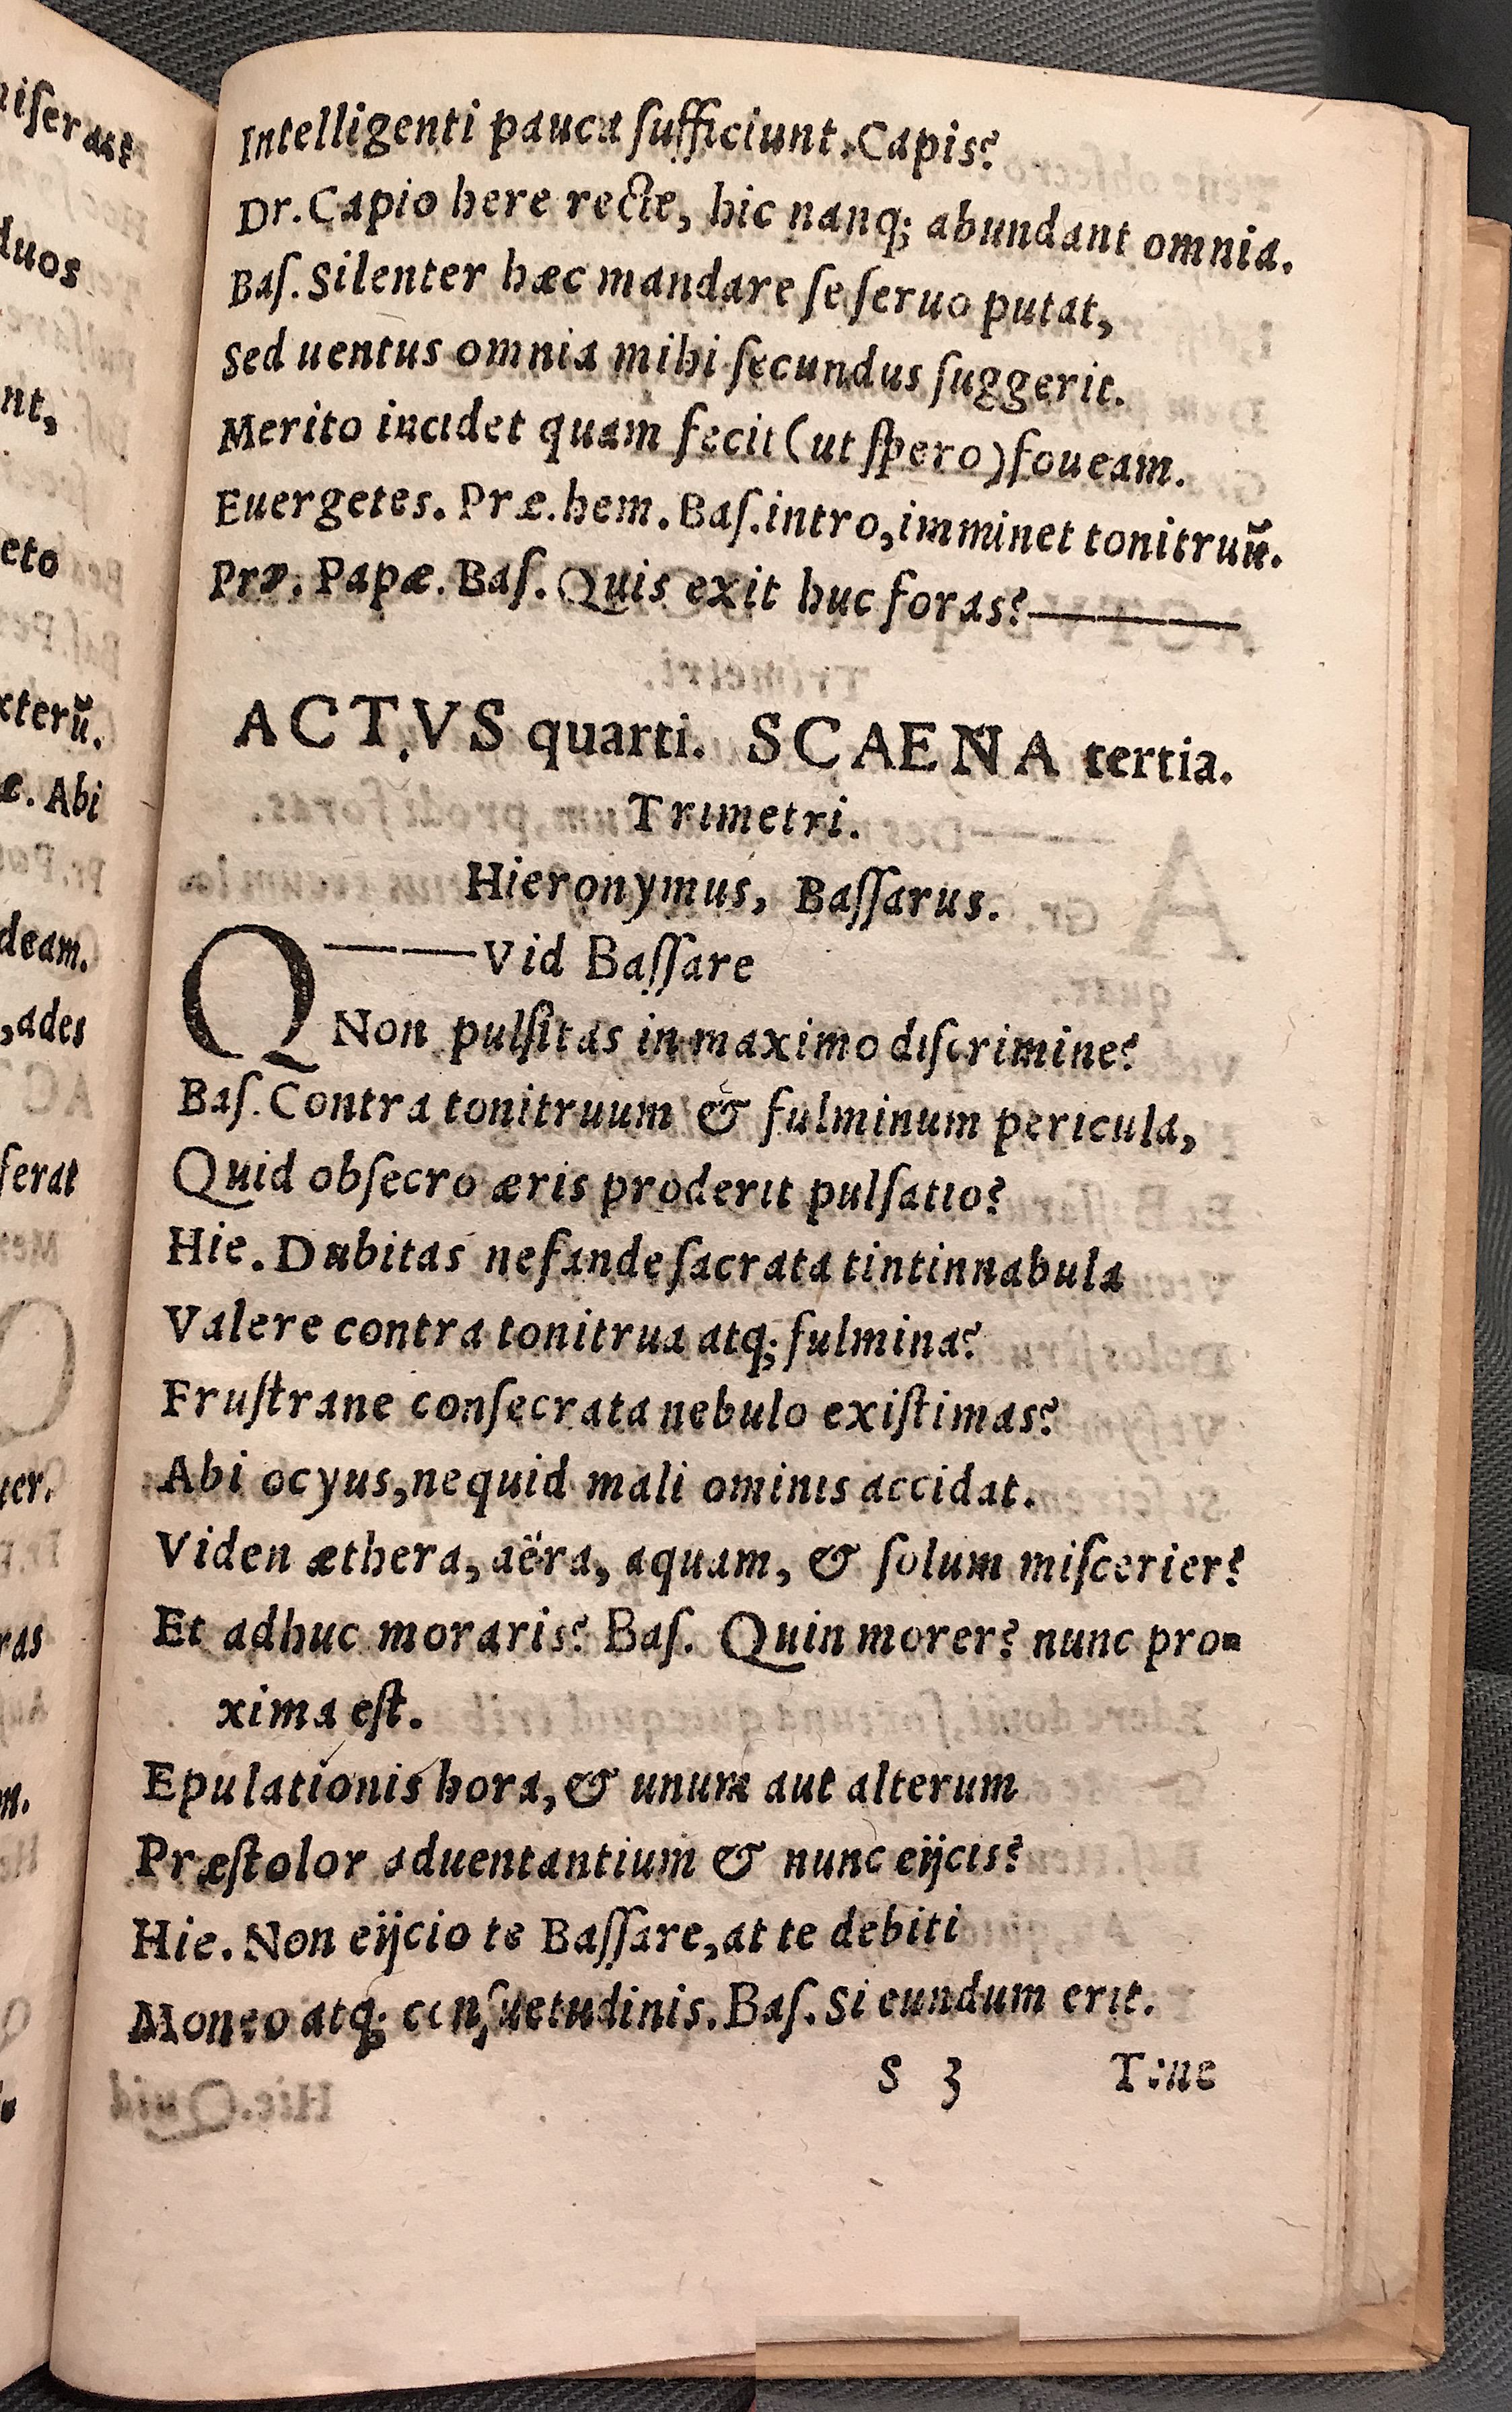 Intelligenti pauca ſufficiunt. Capis?
Dr. Capio here recte, hic nanq; abundant omnia.
Baſ. Silenter hæc mandare ſe ſeruo putat,
Sed uentus omnia mihi ſecundus ſuggerit.
Merito incidet quam fecit (ut ſpero) foueam.
Euergetes. Præ. hem. Baſ. intro, imminet tonitruũ.
Præ. Papæ. Baſ. Quis exit huc foras?———
ACTVS quarti. SCAENA tertia.
Trimetri.
Hieronymus, Baſſarus.
Q———Vid Baſſare
Non pulſitas in maximo diſcrimine?
Baſ. Contra tonitruum & fulminum pericula,
Quid obſecro æris proderit pulſatio?
Hie. Dubitas nefande ſacrata tintinnabula
Valere contra tonitrua atq; fulmina?
Fruſtrane conſecrata nebulo exiſtimas?
Abi ocyus, nequid mali ominis accidat.
Viden æthera, aëra, aquam, & ſolum miſcerier?
Et adhuc moraris? Baſ. Quin morer? nunc pro=
xima eſt.
Epulationis hora, & unum aut alterum
Præſtolor aduentantium & nunc eijcis?
Hie. Non eijcio te Baſſare, at te debiti
Moneo atq; conſuetudinis. Baſ. Si eundum erit.
S 3 Tene
iſerat
duos
nt,
eto
xterũ.
æ. Abi
deam.
, ades
ferat
uer.
ras
m.